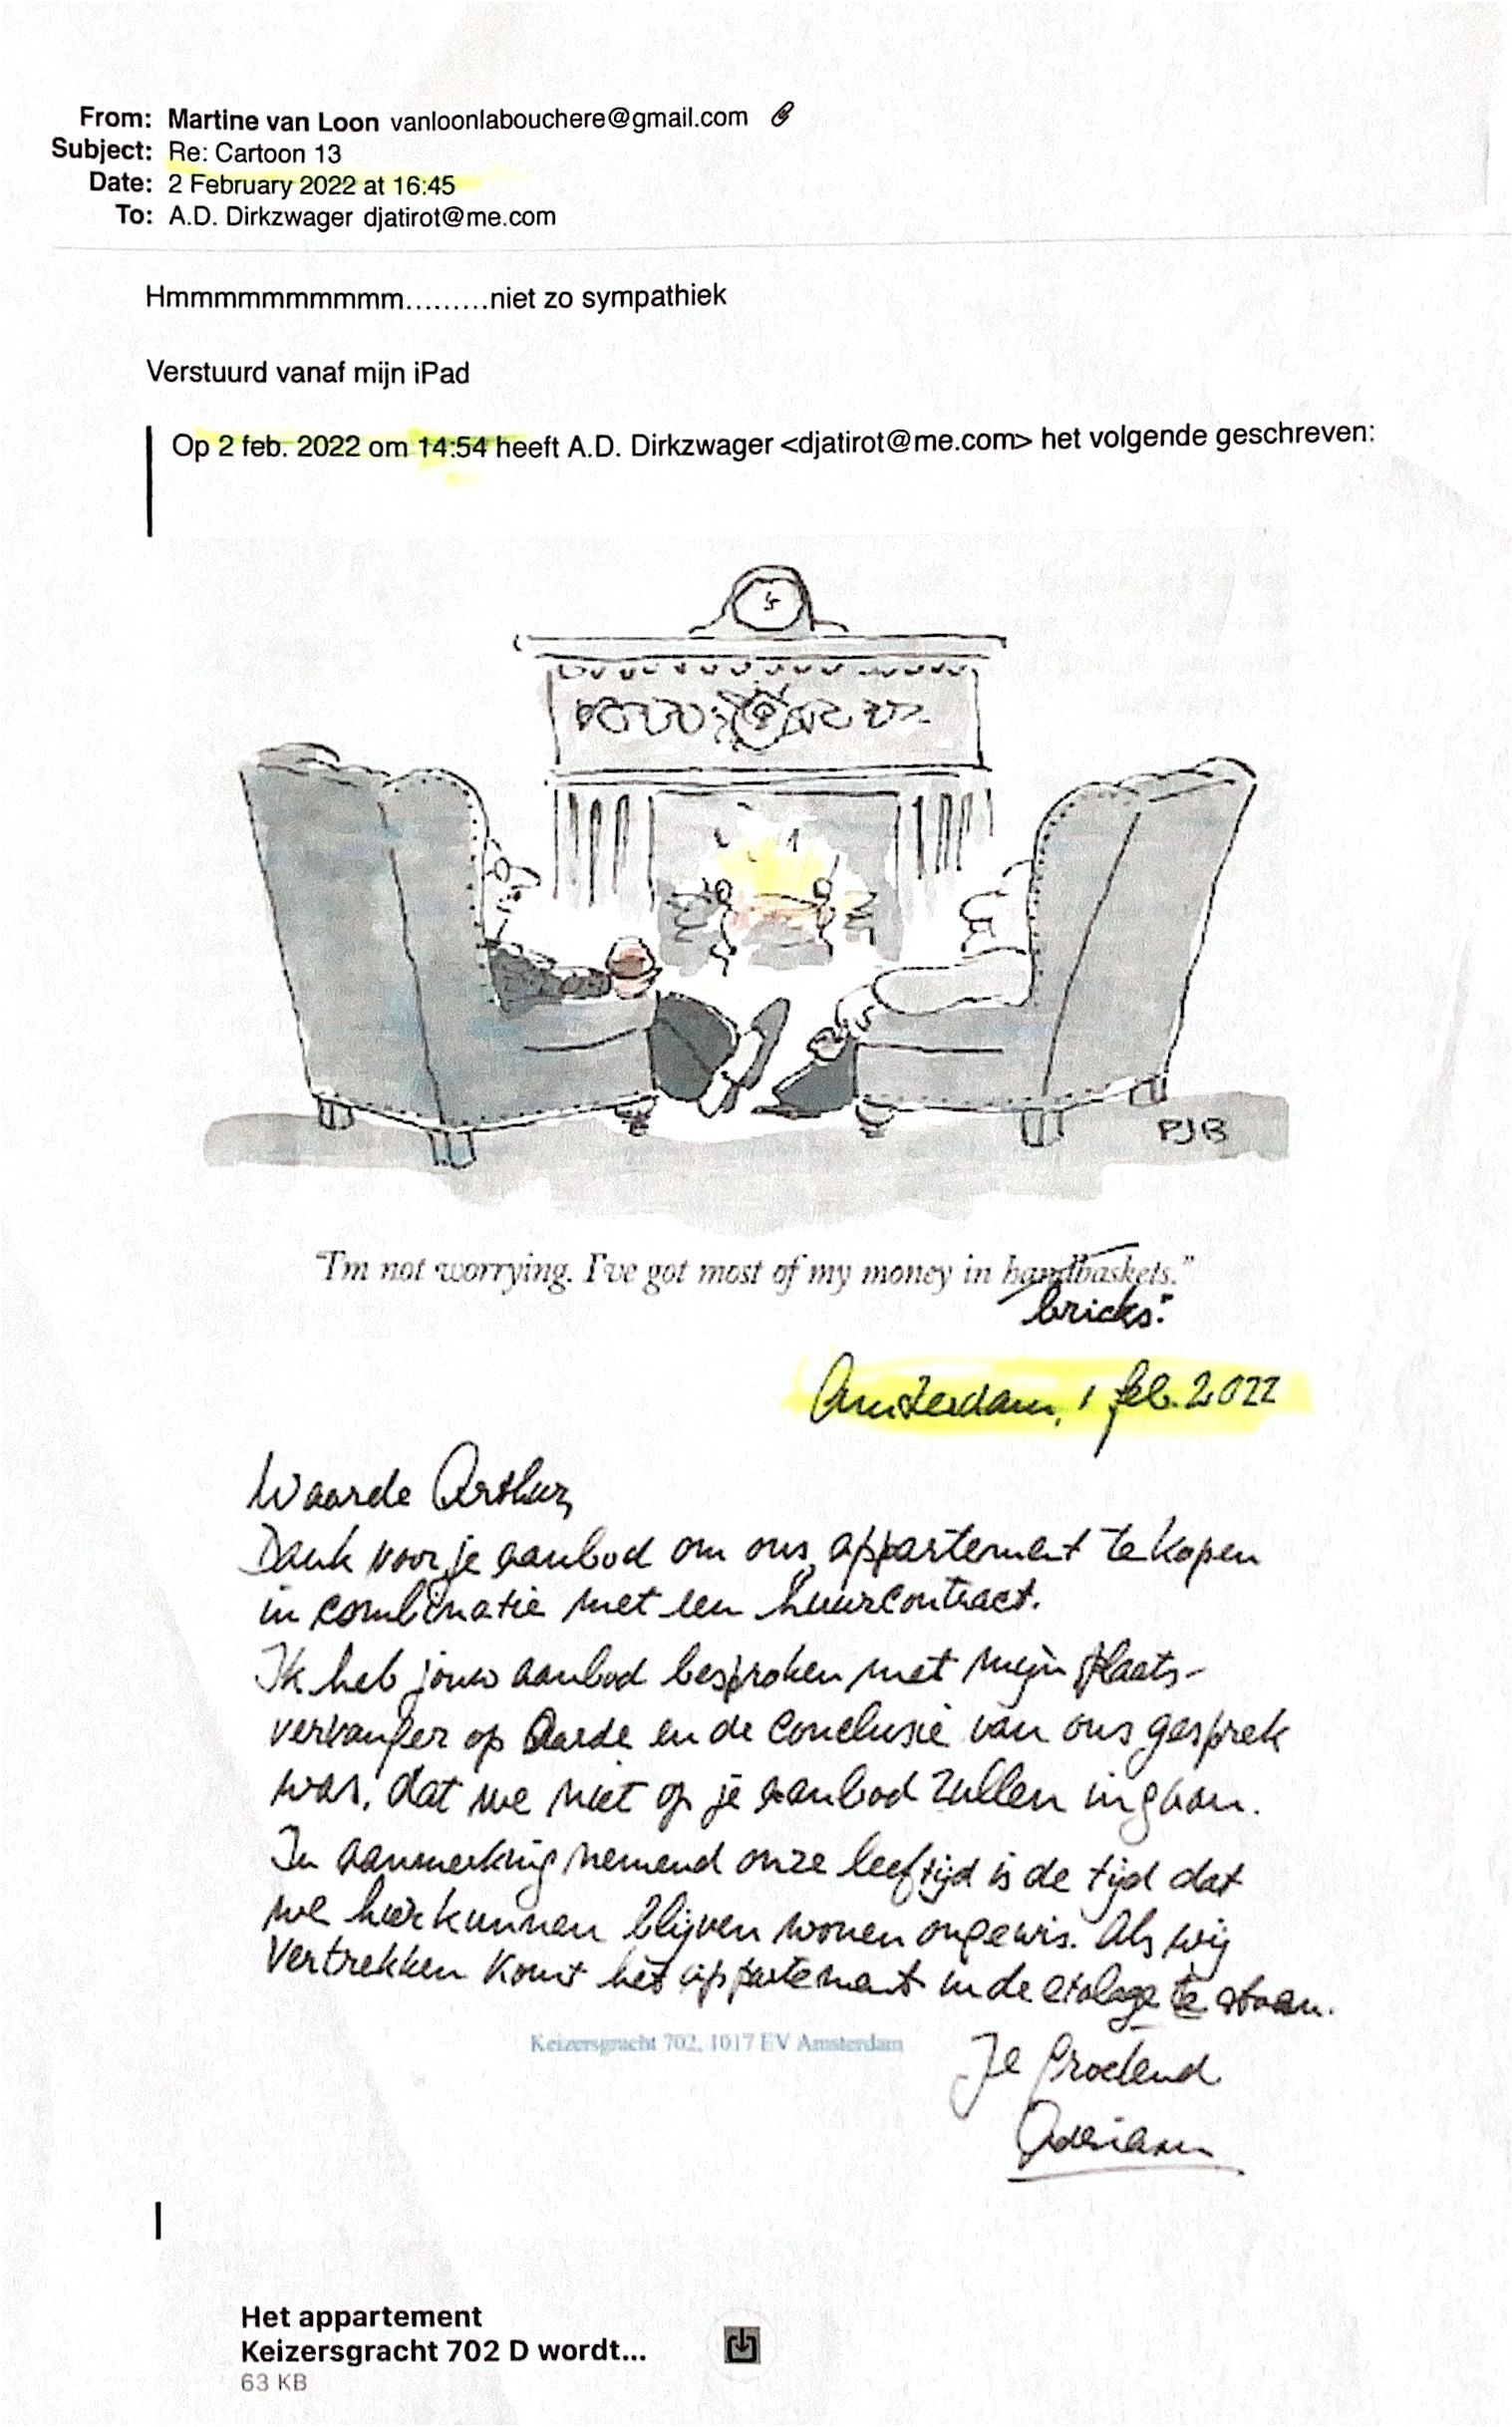 From: Martine van Loon vanloonlabouchere@gmail.com
Subject: Re: Cartoon 13
Date: 2 February 2022 at 16:45
To: A.D. Dirkzwager djatirot@me.com
Hmmmmmmmmmmm.........niet zo sympathiek
Verstuurd vanaf mijn iPad
Op 2 feb. 2022 om 14:54 heeft A.D. Dirkzwager <djatirot@me.com> het volgende geschreven:
PJB
"I'm not worrying. I've got most of my money in handbaskets."
bricks."
Amsterdam, 1 feb. 2022
Waarde Arthur,
Dank voor je aanbod om ons appartement te kopen
in combinatie met een huurcontract.
Ik heb jouw aanbod besproken met mijn plaats-
vervanger op Aarde en de conclusie van ons gesprek
was, dat we niet op je aanbod zullen ingaan.
In aanmerking nemend onze leeftijd is de tijd dat
we hier kunnen blijven wonen ongewis. Als wij
vertrekken komt het appartement in de etalage te staan.
Keizersgracht 702, 1017 EV Amsterdam
Je Groetend
Adriaan
Het appartement
Keizersgracht 702 D wordt...
63 KB